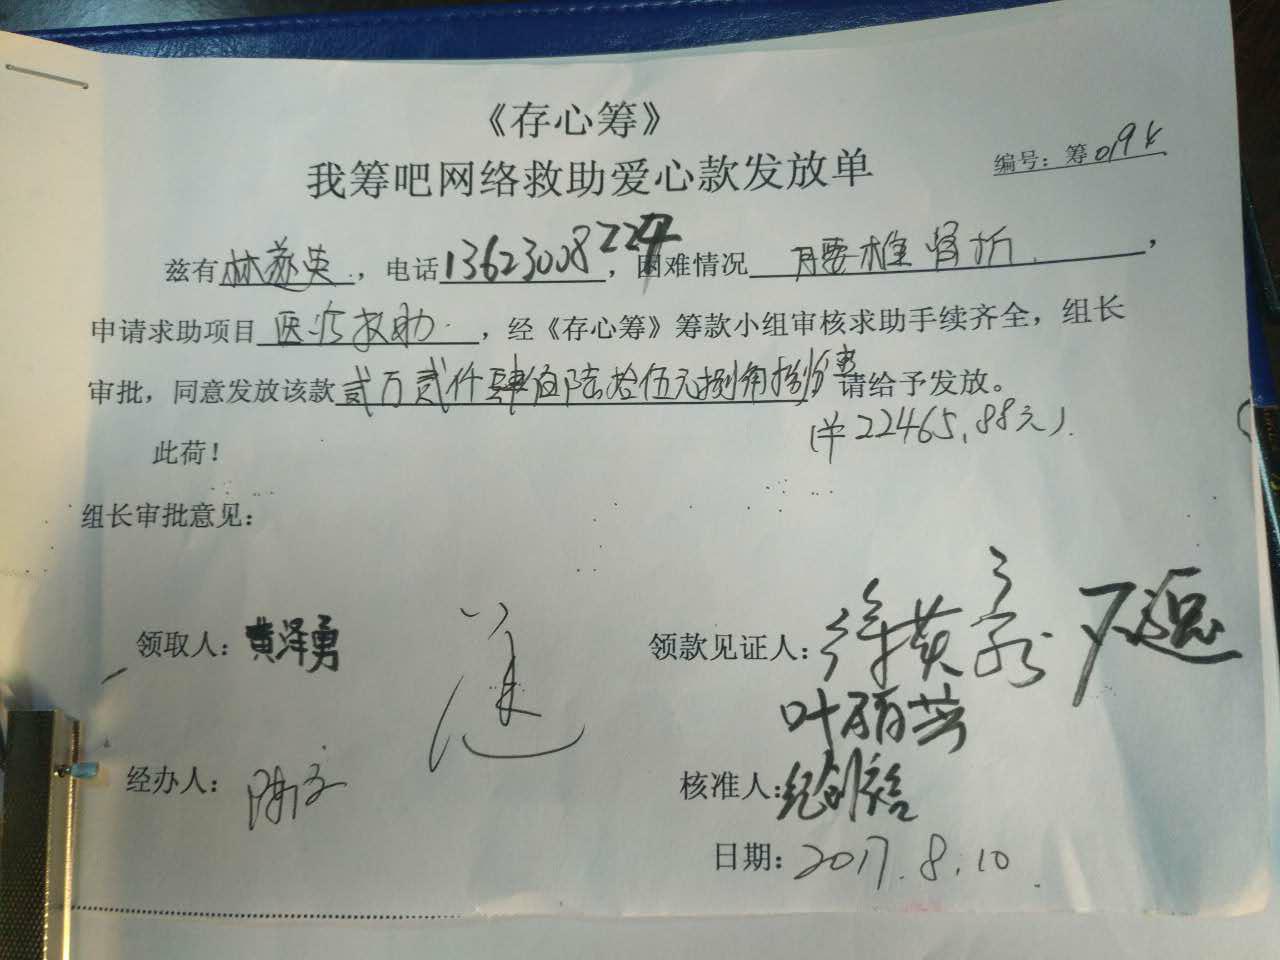 《存心筹》
我筹吧网络救助爱心款发放单
编号：筹019
兹有林燕英，电话13623008224，困难情况腰椎骨折，
申请求助项目医疗救助，经《存心筹》筹款小组审核求助手续齐全，组长
审批，同意发放该款贰万贰仟肆佰陆拾伍元捌角捌分请给予发放。
（￥22465.88元）
此荷！
组长审批意见：
领取人：黄泽勇
领款见证人：
叶丽芸
经办人：
核准人：
日期：2017.8.10